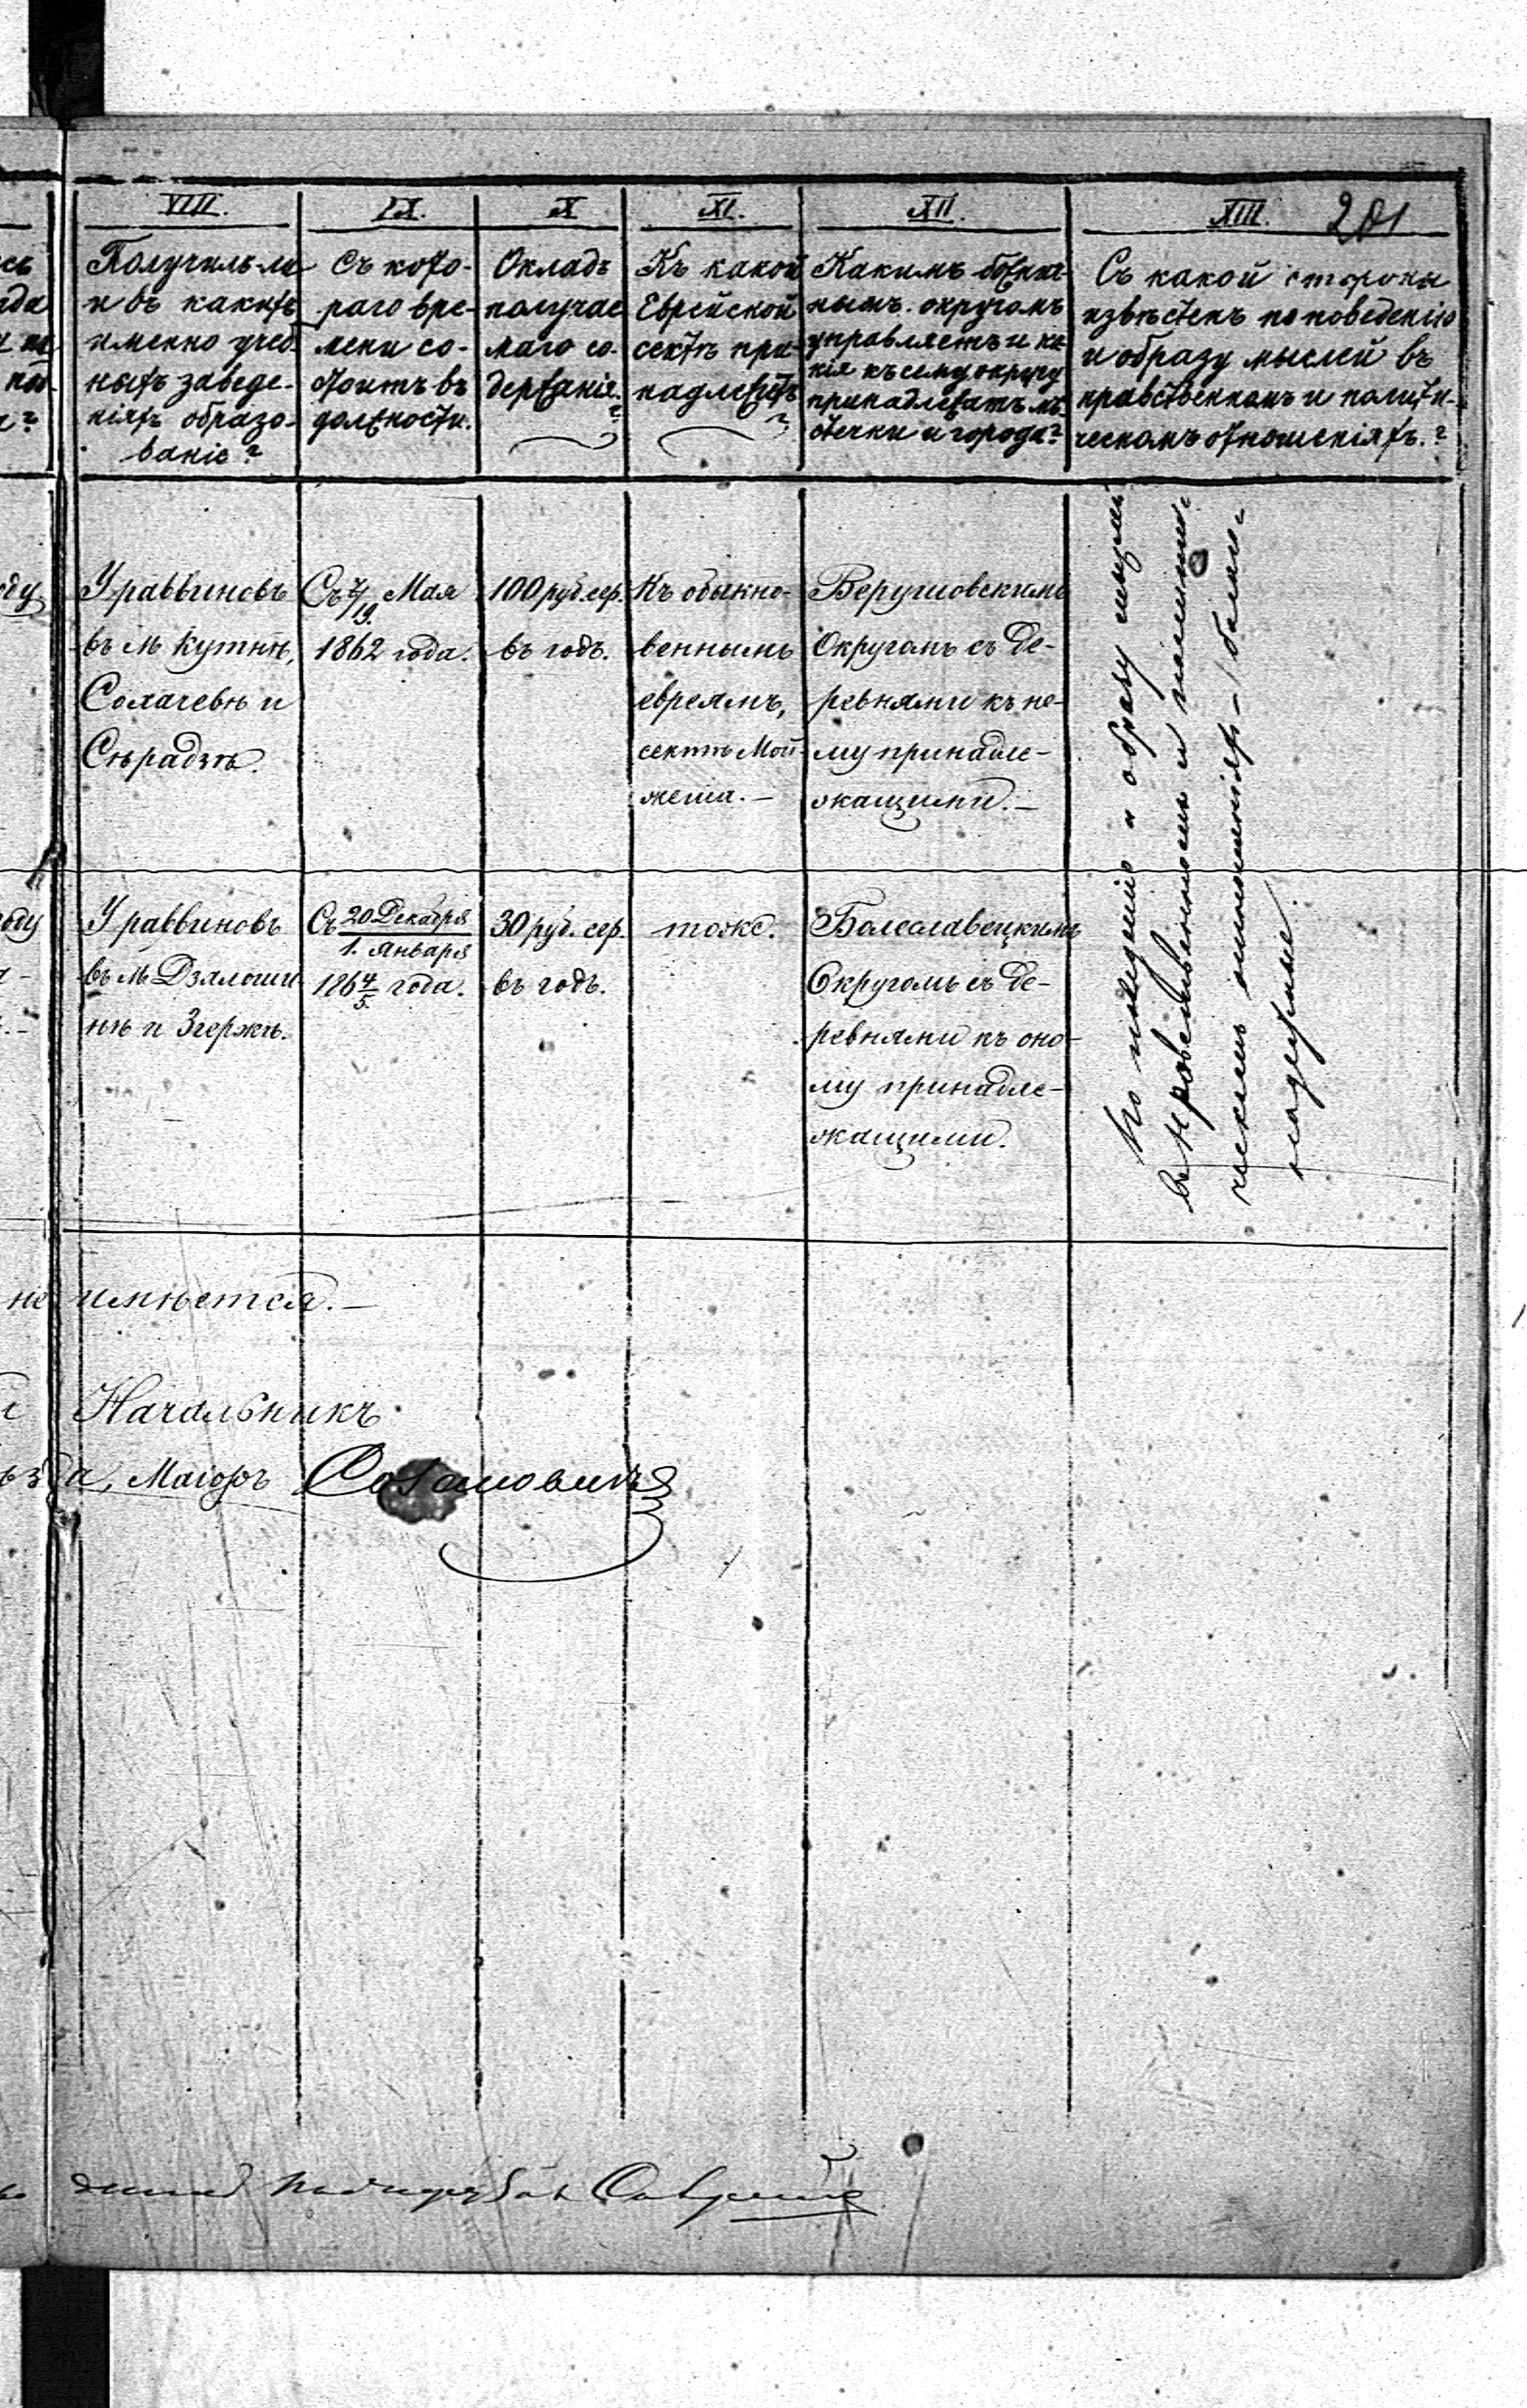 VIII.
Получилъ ли
и въ какихъ
именно учеб
ныхъ заведе-
ніяхъ образо-
ваніе?
IX.
Съ кото-
раго вре-
мени со-
стоитъ въ
должности.
X
Окладъ
получае
маго со-
держанія.
?
XI.
Къ какой
Еврейской
сектѣ при-
надлежитъ
?
XII.
Какимъ божнич-
нымъ округомъ
управляетъ и ка-
кія къ сему округу
принадлежатъ мѣ-
стечки и города?
XIII.
201
Съ какой стороны
извѣстенъ по поведенію
и образу мыслей въ
нравственномъ и полити-
ческомъ отношеніяхъ.?
У раввиновъ
въ м Кутнѣ,
Сохачевѣ и
Сѣрадзѣ.
Съ 7/19. Мая
1862 года.
100 руб. сер.
въ годъ.
Къ обыкно-
веннымъ
евреямъ,
сектѣ Мой-
жеша.-
Верушовскимъ
Округомъ съ де-
ревнями къ не-
му принадле-
жащими.-
По поведенію и образу мыслей
въ нравственномъ и полити-
ческомъ отношеніяхъ - благо-
надежные.
У раввиновъ
въ м. Дзялоши
нѣ и Згержѣ.
Съ 20 Декабря
1. Января
186 4/5. года.
30 руб. сер.
въ годъ.
тоже.
Болеславецкимъ
Округомъ съ де-
ревнями къ оно-
му принадле-
жащими.
не имѣется.-
Начальникъ
ѣзда, Маіоръ